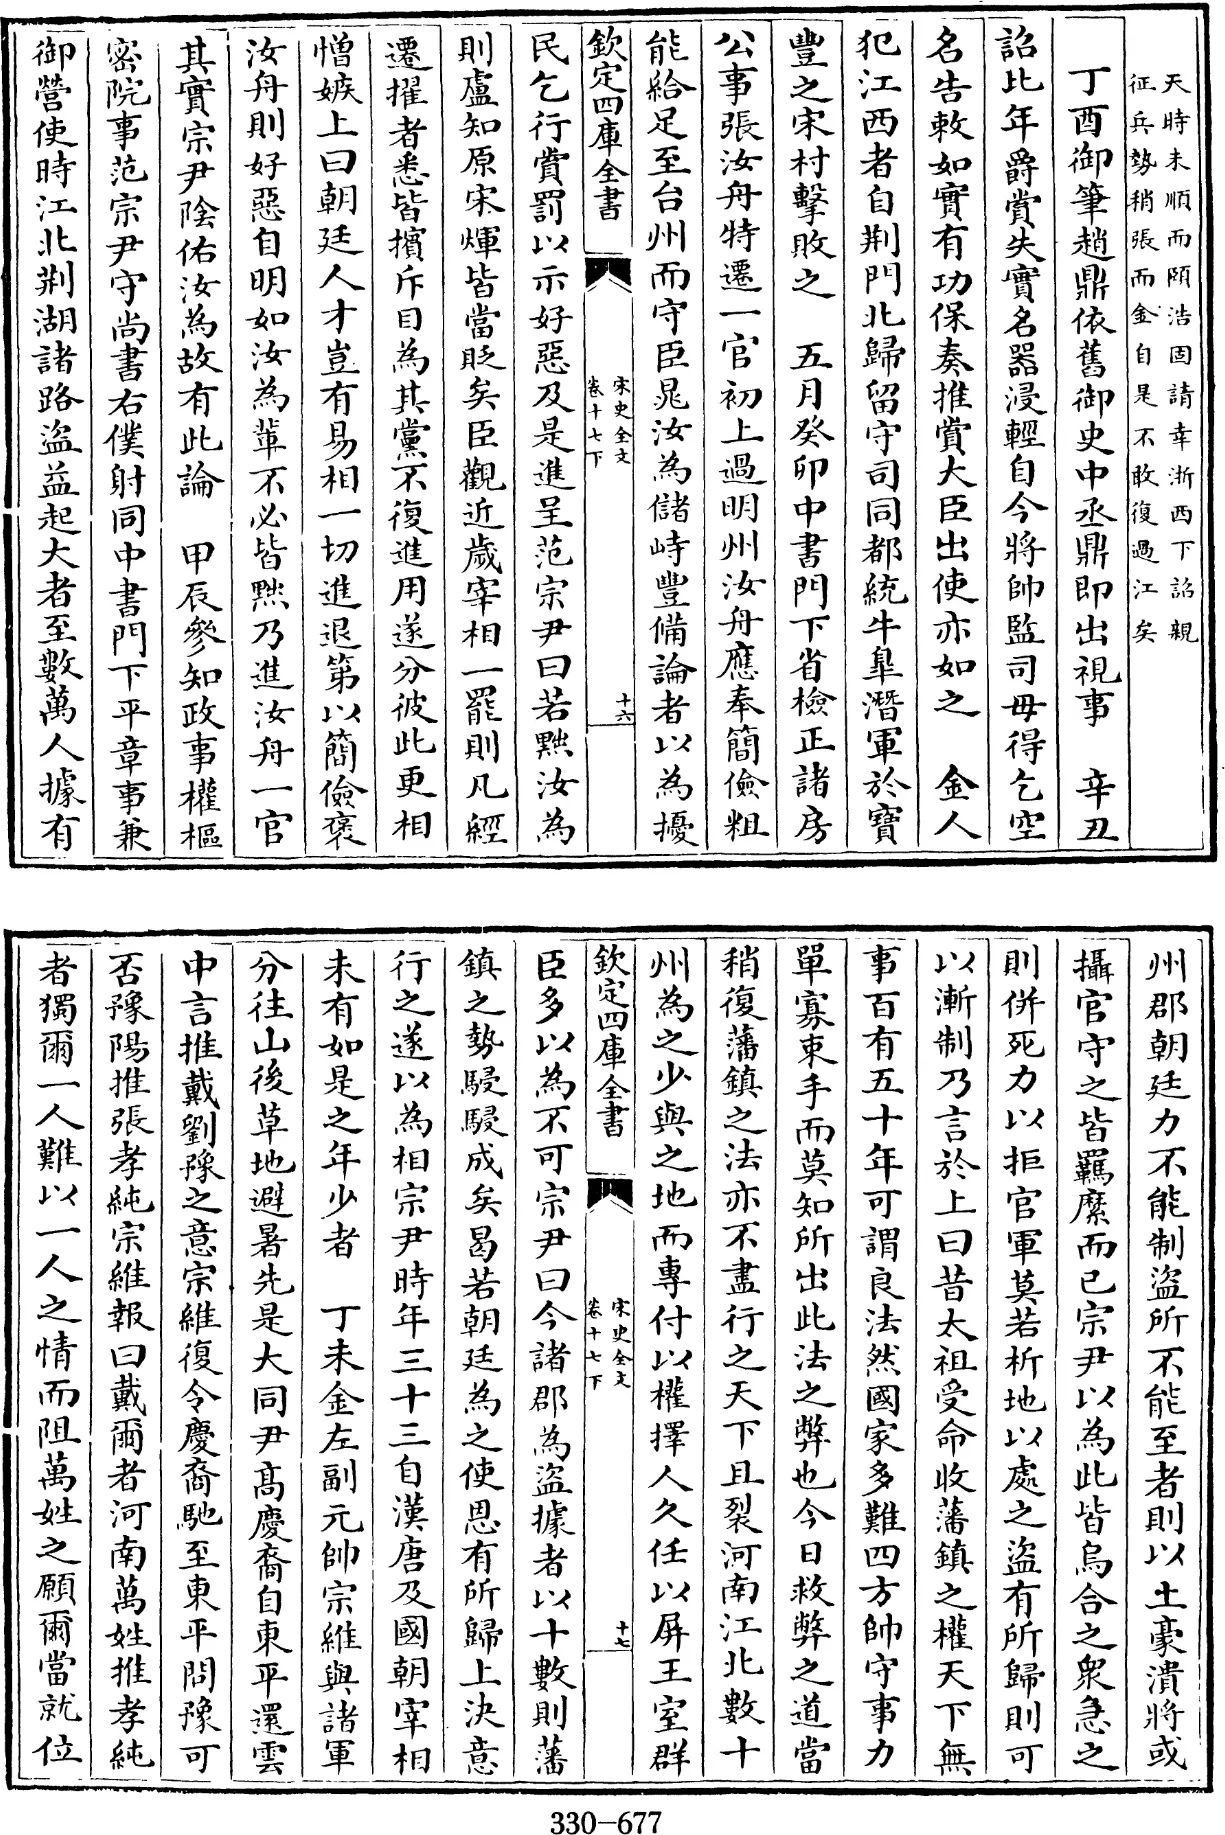 天時未順而頤浩固請幸浙西下詔親
征兵勢稍張而金自是不敢復過江矣
丁酉御筆趙鼎依舊御史中丞鼎即出視事　辛丑
詔比年爵賞失實名器浸輕自今將帥監司毋得乞空
名告敕如實有功保奏推賞大臣出使亦如之　金人
犯江西者自荆門北歸留守司同都統牛臯潛軍於寶
豐之宋村擊敗之　五月癸卯中書門下省檢正諸房
公事張汝舟特遷一官初上過明州汝舟應奉簡儉粗
能給足至台州而守臣晁汝為儲峙豐備論者以為擾
欽定四庫全書
宋史全文
卷十七下
十六
民乞行賞罰以示好惡及是進呈范宗尹曰若黜汝為
則盧知原宋煇皆當貶矣臣觀近歲宰相一罷則凡經
遷擢者悉皆擯斥目為其黨不復進用遂分彼此更相
憎嫉上曰朝廷人才豈有易相一切進退第以簡儉褒
汝舟則好惡自明如汝為輩不必皆黜乃進汝舟一官
其實宗尹陰佑汝為故有此論　甲辰參知政事權樞
密院事范宗尹守尚書右僕射同中書門下平章事兼
御營使時江北荆湖諸路盜益起大者至數萬人據有
州郡朝廷力不能制盜所不能至者則以土豪潰將或
攝官守之皆羈縻而已宗尹以為此皆烏合之衆急之
則併死力以拒官軍莫若析地以處之盜有所歸則可
以漸制乃言於上曰昔太祖受命收藩鎮之權天下無
事百有五十年可謂良法然國家多難四方帥守事力
單寡束手而莫知所出此法之弊也今日救弊之道當
稍復藩鎮之法亦不盡行之天下且裂河南江北數十
州為之少與之地而專付以權擇人久任以屏王室群
欽定四庫全書
宋史全文
卷十七下
十七
臣多以為不可宗尹曰今諸郡為盜據者以十數則藩
鎮之勢駸駸成矣曷若朝廷為之使恩有所歸上決意
行之遂以為相宗尹時年三十三自漢唐及國朝宰相
未有如是之年少者　丁未金左副元帥宗維與諸軍
分往山後草地避暑先是大同尹髙慶裔自東平還雲
中言推戴劉豫之意宗維復令慶裔馳至東平問豫可
否豫陽推張孝純宗維報曰戴爾者河南萬姓推孝純
者獨爾一人難以一人之情而阻萬姓之願爾當就位
330-677